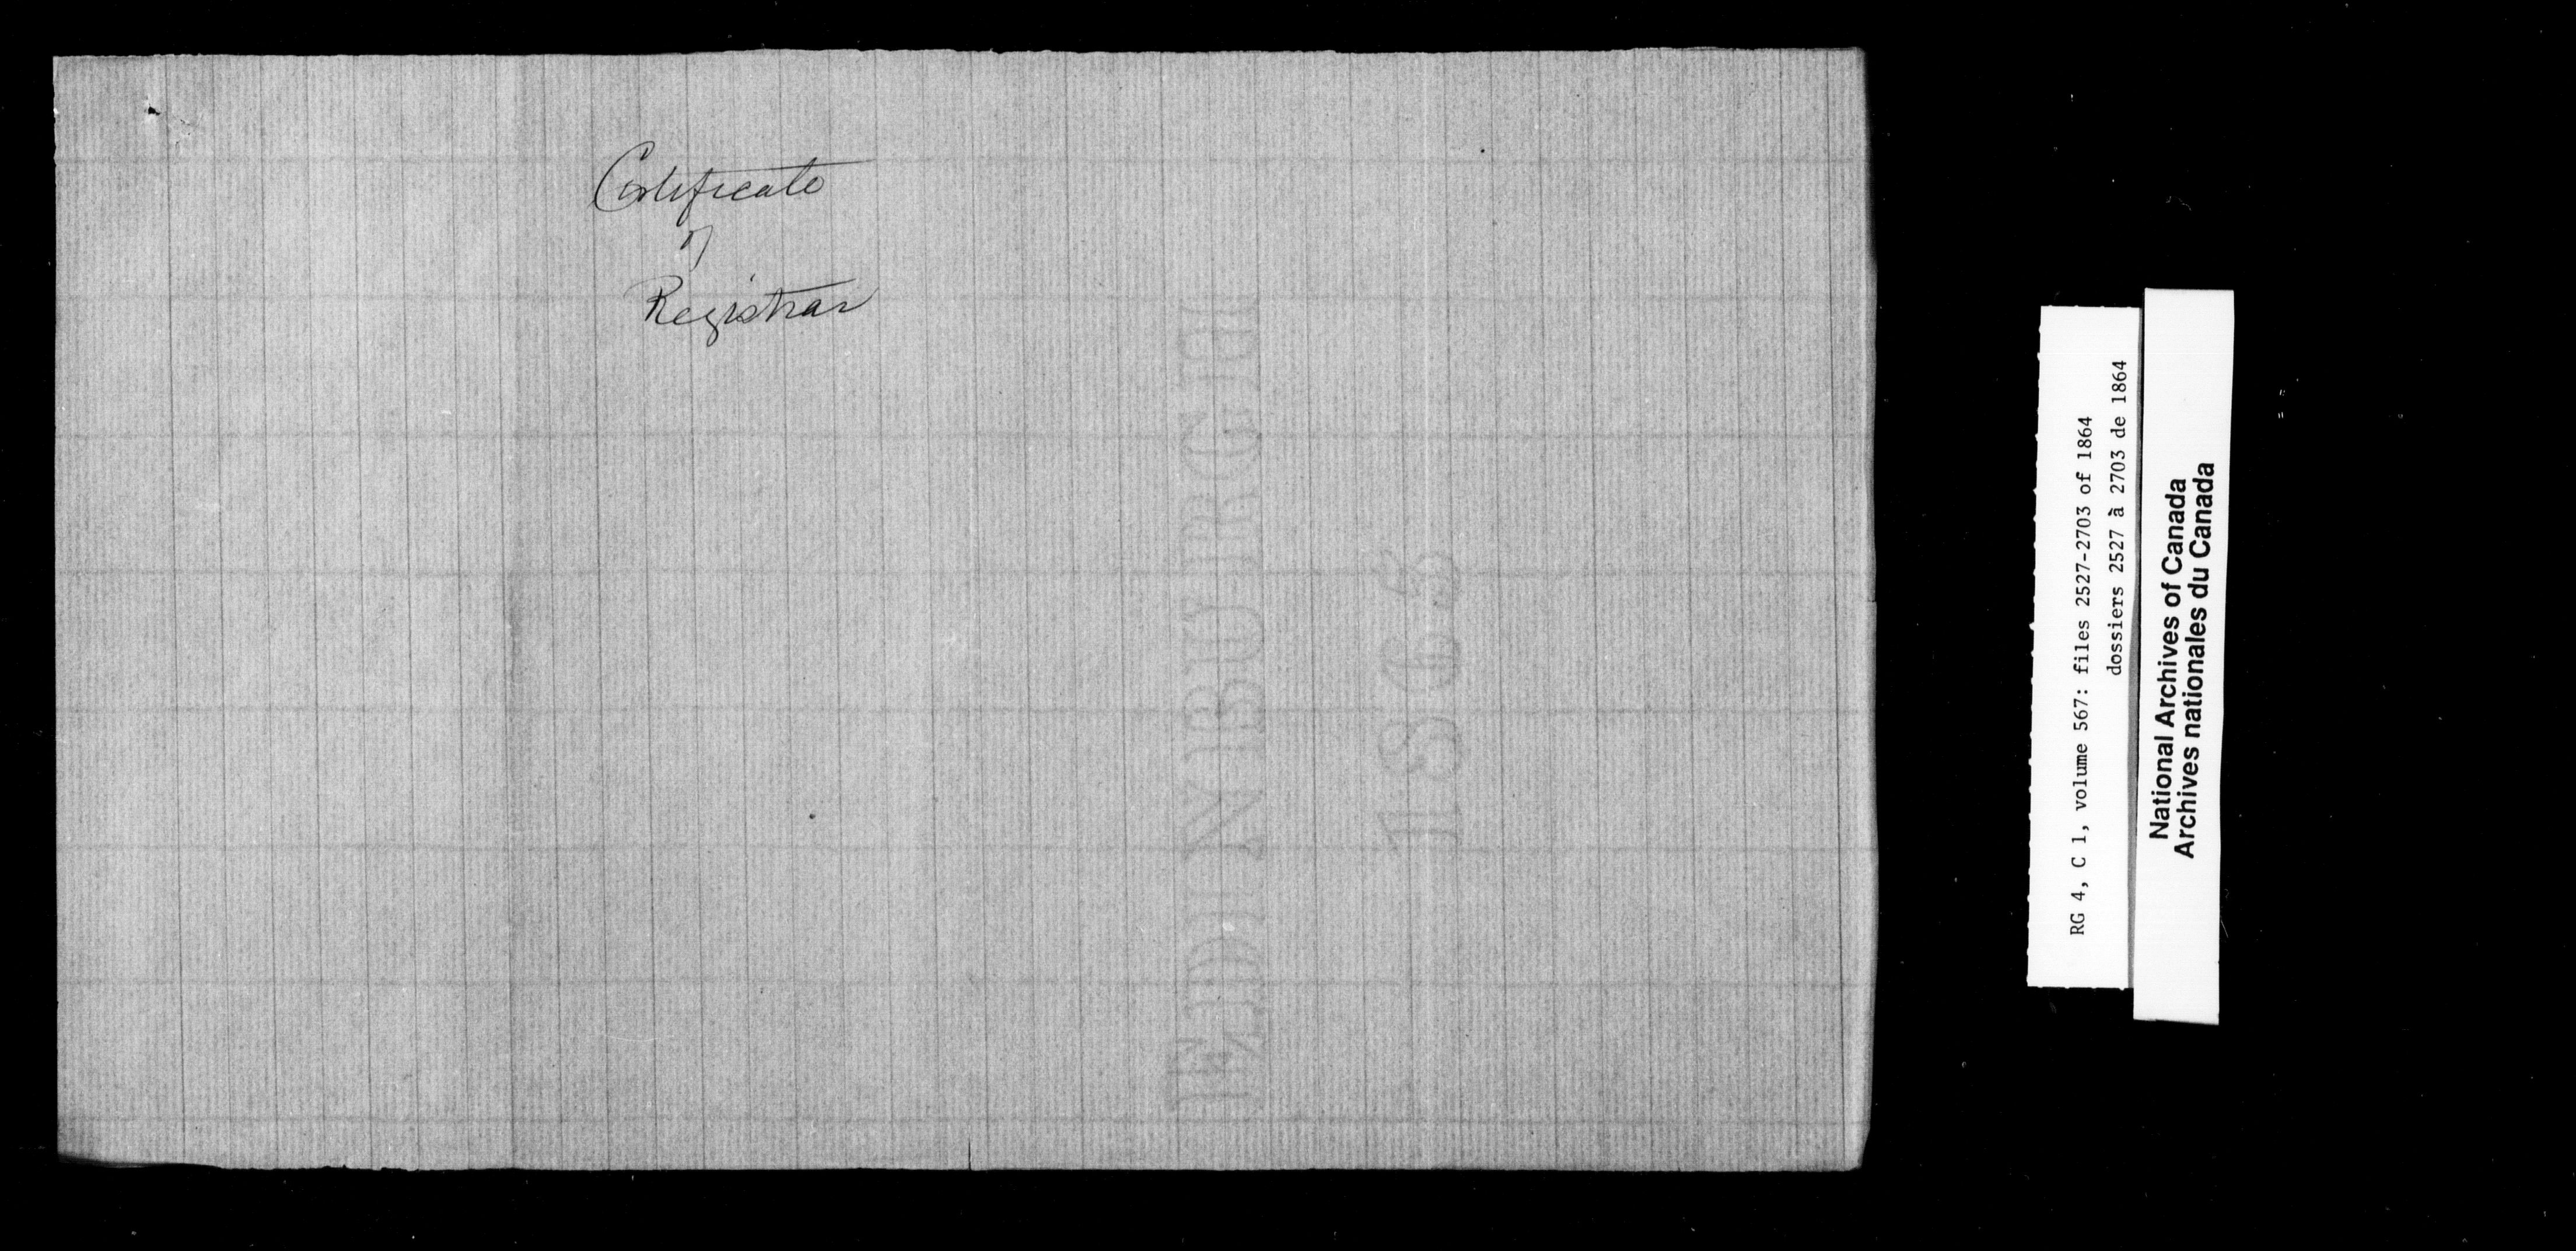 Certificate
of
Registrar
EDINBURGH
RG 4, C 1, volume 567: files 2527-2703 of 1864
dossiers 2527 à 2703 de 1864
National Archives of Canada
Archives nationales du Canada